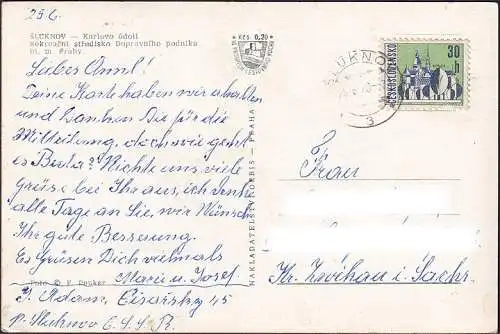 25.6.
ŠLUKNOV — Karlovo údolí
Rekreační středisko Dopravního podniku
hl. m. Prahy
Kčs 0,20
Lieber Onnl!
Deine Karte haben wir erhalten
und danken Dir für die
Mitteilung, doch wie geht
es Buta? Richte uns viele
Grüse bei Ihr aus, ich denk
alle Tage an Sie, wir Wünschen
Ihr gute Besserung.
Es Grüsen Dich vielmals
Marie u. Josef
Foto © F. Donker
J. Adam, Císařský 45
p. Šluknov Č.S.S.R.
NAKLADATELSTVÍ ORBIS — PRAHA
ŠLUKNOV
3
30 h
ČESKOSLOVENSKO
Frau
Kr. Zwikau i. Sachs.